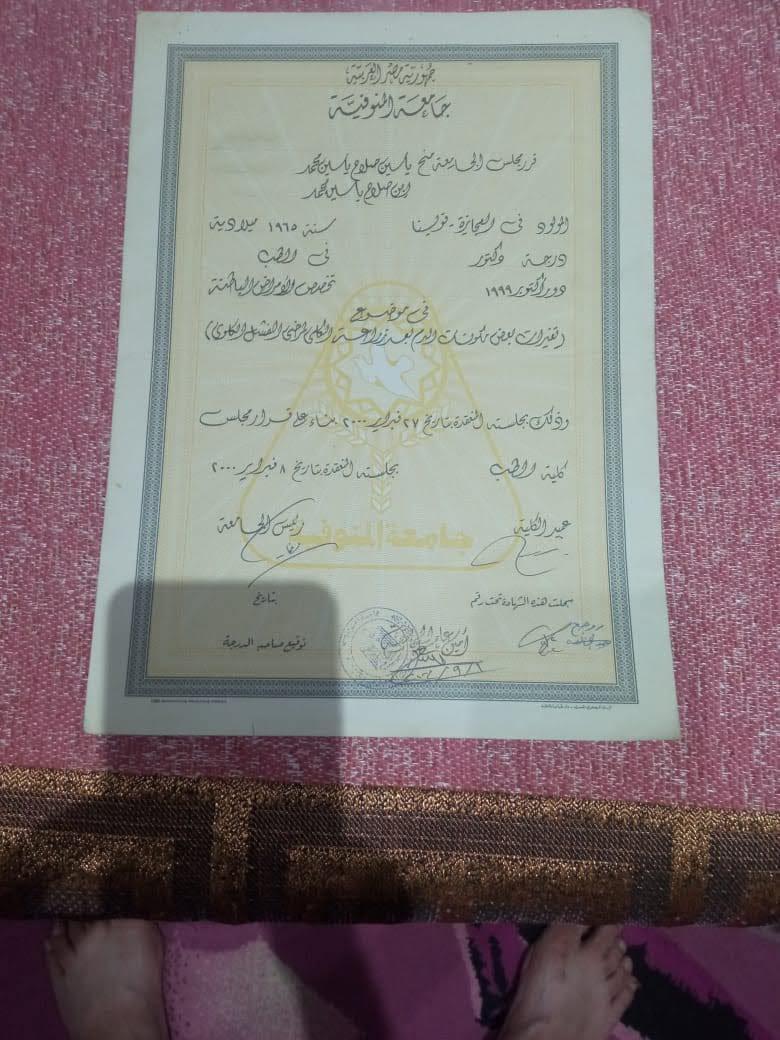 جمهورية مصر العربية
جامعة المنوفية
قرر مجلس الجامعة منح ياسين صلاح ياسين محمد
ابن صلاح ياسين محمد
المولود فى العجايزة - قويسنا سنة ١٩٦٥ ميلادية
درجة دكتور فى الطب
دور أكتوبر ١٩٩٩ تخصص الأمراض الباطنة
فى موضوع
(تغيرات بعض مكونات الدم بعد زراعة الكلى لمرضى الفشل الكلوى)
وذلك بجلسته المنعقدة بتاريخ ٢٧ فبراير ٢٠٠٠ بناء على قرار مجلس
كلية الطب بجلسته المنعقدة بتاريخ ٨ فبراير ٢٠٠٠
عميد الكلية رئيس الجامعة
جامعة المنوفية
سجلت هذه الشهادة تحت رقم بتاريخ
توقيع صاحب الدرجة